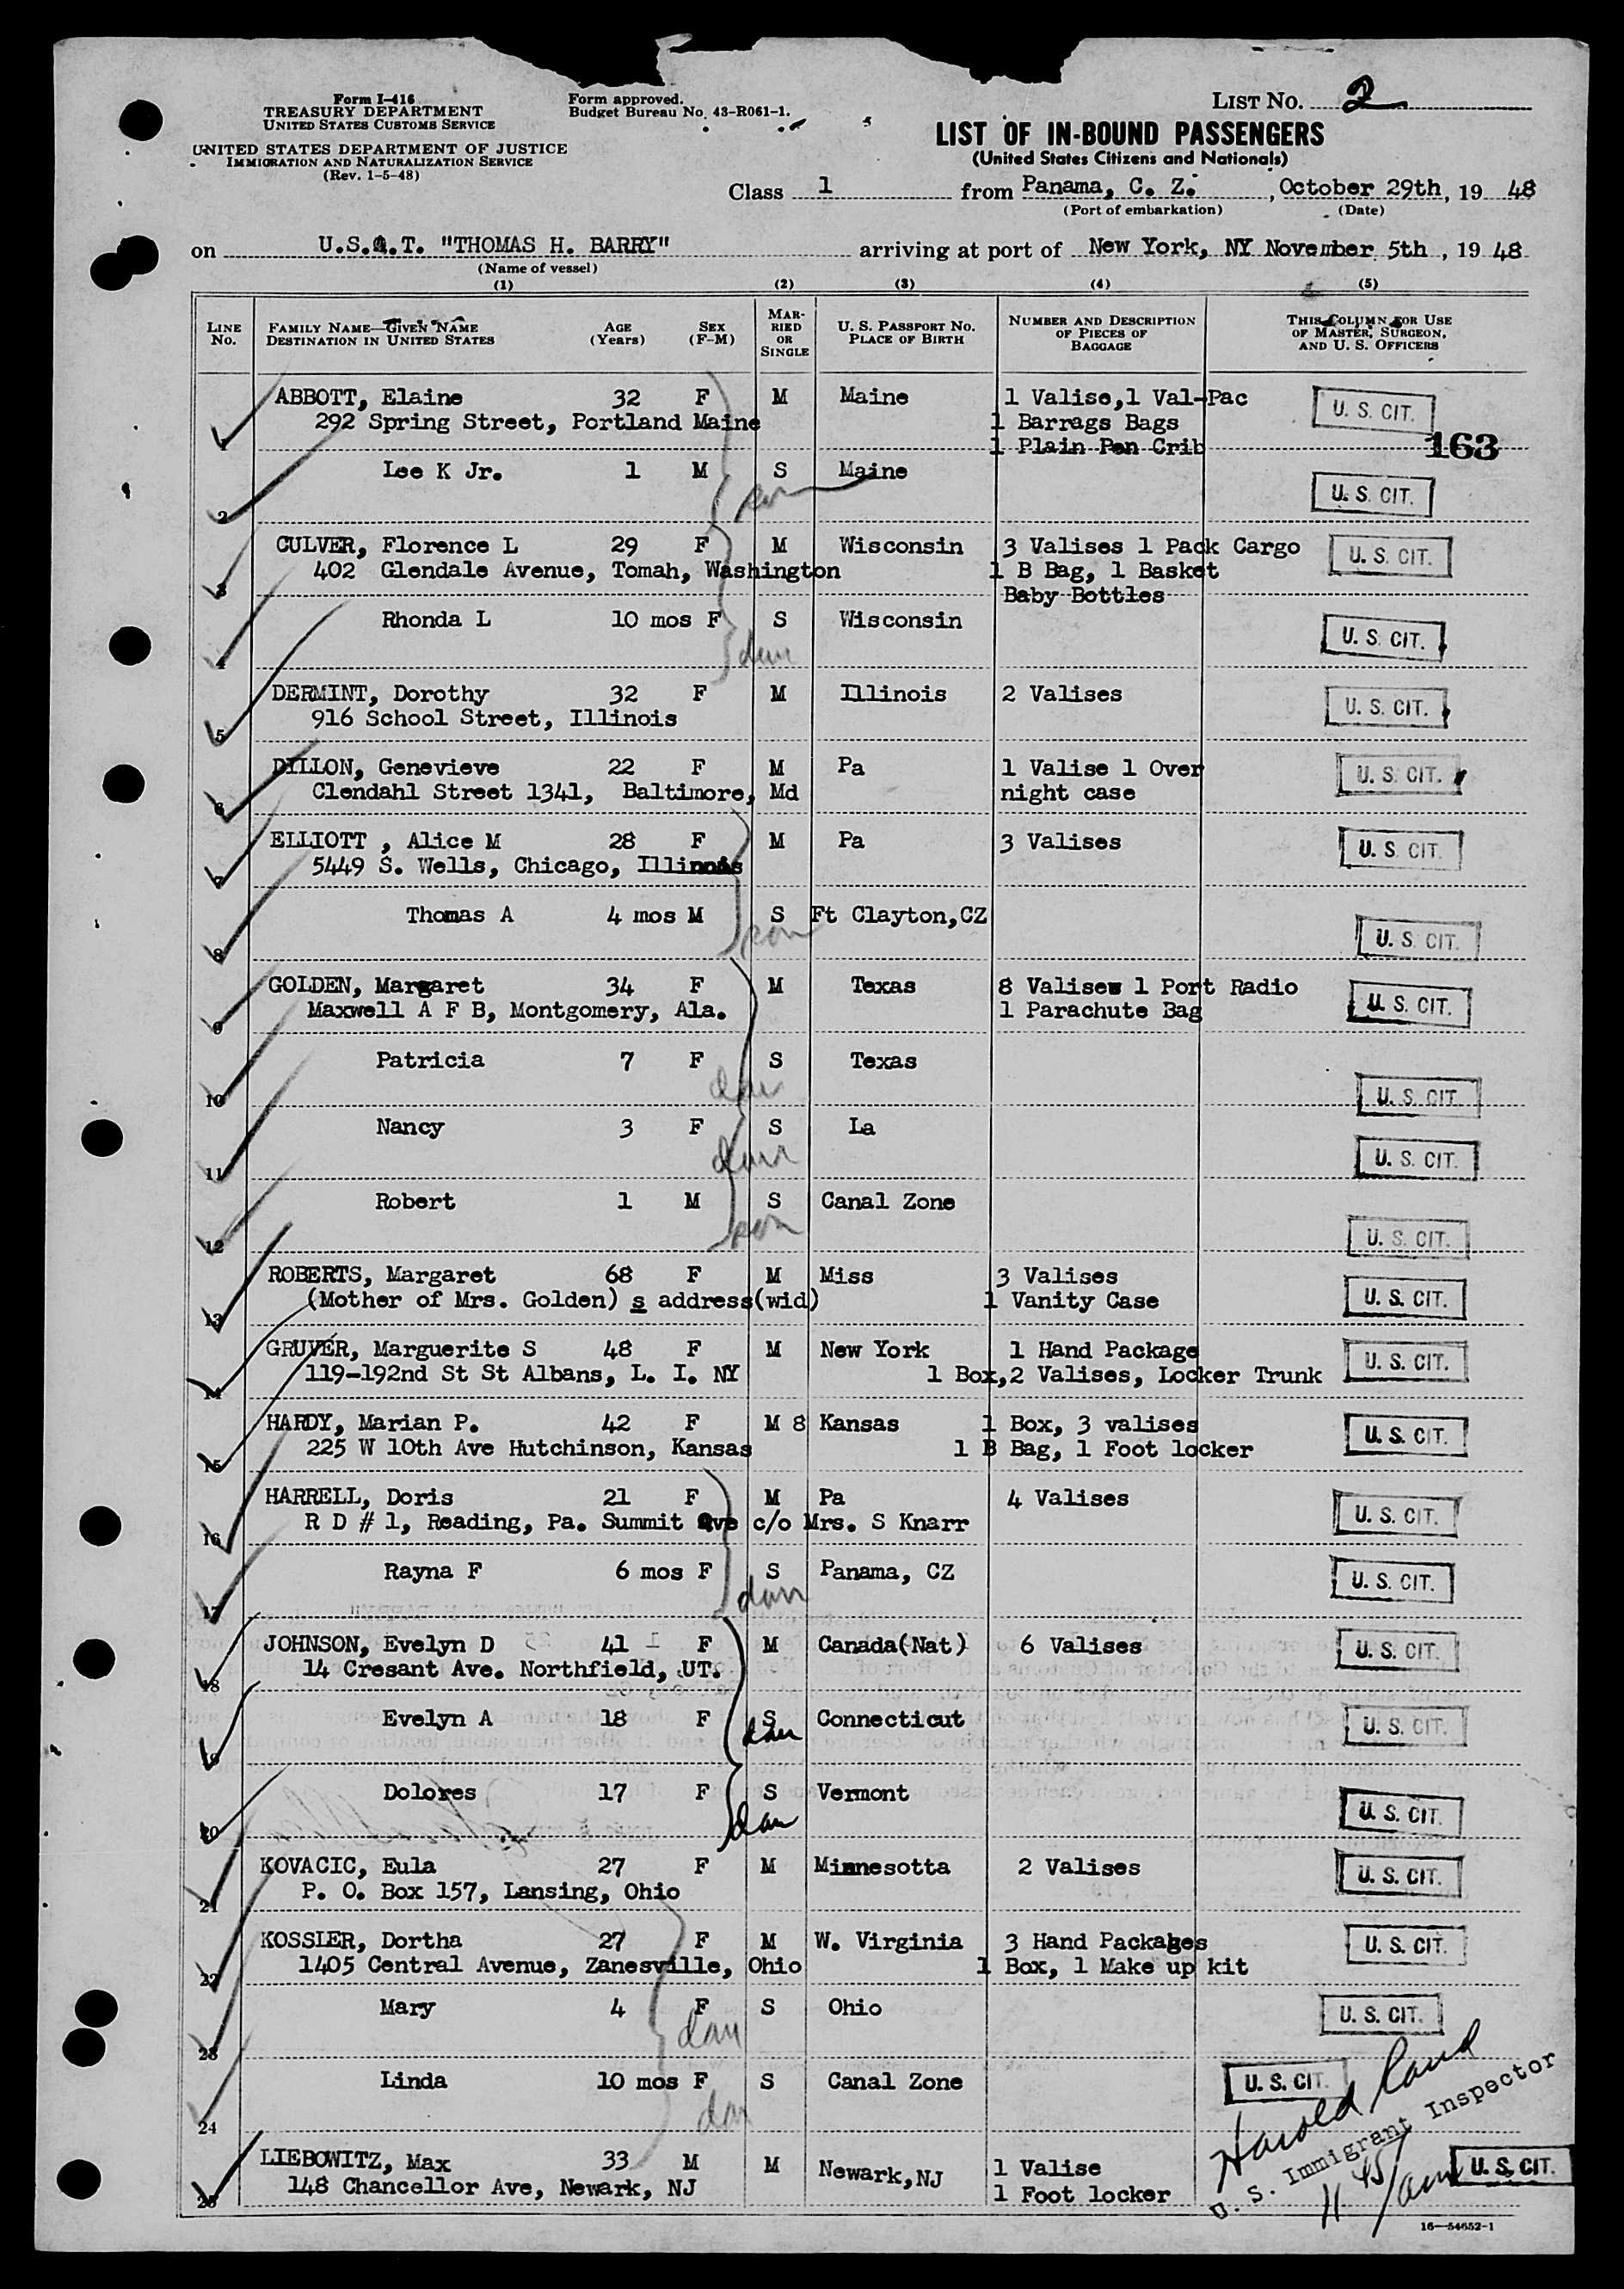 Form I-416
TREASURY DEPARTMENT
UNITED STATES CUSTOMS SERVICE
UNITED STATES DEPARTMENT OF JUSTICE
IMMIGRATION AND NATURALIZATION SERVICE
(Rev. 1-5-48)
Form approved.
Budget Bureau No. 43-R061-1.
LIST NO. 2
LIST OF IN-BOUND PASSENGERS
(United States Citizens and Nationals)
Class 1 from Panama, C. Z. , October 29th, 19 48
(Port of embarkation) (Date)
on U.S.A.T. "THOMAS H. BARRY" arriving at port of New York, NY November 5th , 19 48
(Name of vessel)
(1) (2) (3) (4) (5)
LINE NO. FAMILY NAME—GIVEN NAME DESTINATION IN UNITED STATES AGE (Years) SEX (F-M) MARRIED OR SINGLE U. S. PASSPORT NO. PLACE OF BIRTH NUMBER AND DESCRIPTION OF PIECES OF BAGGAGE THIS COLUMN FOR USE OF MASTER, SURGEON, AND U. S. OFFICERS
ABBOTT, Elaine 32 F M Maine 1 Valise,1 Val-Pac U. S. CIT.
292 Spring Street, Portland Maine 1 Barrags Bags
1 1 Plain Pen Crib 163
Lee K Jr. 1 M S Maine
2 son U. S. CIT.
CULVER, Florence L 29 F M Wisconsin 3 Valises 1 Pack Cargo U. S. CIT.
402 Glendale Avenue, Tomah, Washington 1 B Bag, 1 Basket
3 Baby Bottles
Rhonda L 10 mos F S Wisconsin U. S. CIT.
4 dau
DERMINT, Dorothy 32 F M Illinois 2 Valises U. S. CIT.
916 School Street, Illinois
5
DILLON, Genevieve 22 F M Pa 1 Valise 1 Over U. S. CIT.
6 Clendahl Street 1341, Baltimore, Md night case
ELLIOTT , Alice M 28 F M Pa 3 Valises U. S. CIT.
7 5449 S. Wells, Chicago, Illinois
Thomas A 4 mos M S Ft Clayton,CZ
8 son U. S. CIT.
GOLDEN, Margaret 34 F M Texas 8 Valises 1 Port Radio U. S. CIT.
9 Maxwell A F B, Montgomery, Ala. 1 Parachute Bag
Patricia 7 F S Texas
10 dau U. S. CIT.
Nancy 3 F S La
11 dau U. S. CIT.
Robert 1 M S Canal Zone
12 son U. S. CIT.
ROBERTS, Margaret 68 F M Miss 3 Valises U. S. CIT.
13 (Mother of Mrs. Golden) s address(wid) 1 Vanity Case
GRUVER, Marguerite S 48 F M New York 1 Hand Package U. S. CIT.
14 119-192nd St St Albans, L. I. NY 1 Box,2 Valises, Locker Trunk
HARDY, Marian P. 42 F M 8 Kansas 1 Box, 3 valises U. S. CIT.
15 225 W 10th Ave Hutchinson, Kansas 1 B Bag, 1 Foot locker
HARRELL, Doris 21 F M Pa 4 Valises U. S. CIT.
16 R D # 1, Reading, Pa. Summit Ave c/o Mrs. S Knarr
Rayna F 6 mos F S Panama, CZ U. S. CIT.
17 dau
JOHNSON, Evelyn D 41 F M Canada(Nat) 6 Valises U. S. CIT.
18 14 Cresant Ave. Northfield, UT.
Evelyn A 18 F S Connecticut U. S. CIT.
19 dau
Dolores 17 F S Vermont U. S. CIT.
20 dau
KOVACIC, Eula 27 F M Minnesotta 2 Valises U. S. CIT.
21 P. O. Box 157, Lansing, Ohio
KOSSLER, Dortha 27 F M W. Virginia 3 Hand Packages U. S. CIT.
22 1405 Central Avenue, Zanesville, Ohio 1 Box, 1 Make up kit
Mary 4 F S Ohio U. S. CIT.
23 dau
Linda 10 mos F S Canal Zone U. S. CIT.
24 dau
Harold
U. S. Immigrant Inspector
LIEBOWITZ, Max 33 M M Newark,NJ 1 Valise U. S. CIT.
25 148 Chancellor Ave, Newark, NJ 1 Foot locker
16—54652-1